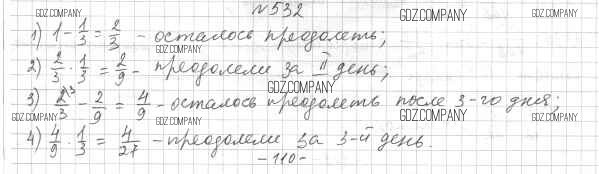 №532
GDZ.COMPANY GDZ.COMPANY
1) 1 - 1/3 = 2/3 - осталось преодолеть;
GDZ.COMPANY
2) 2/3 · 1/3 = 2/9 - преодолели за II день;
GDZ.COMPANY
3) 2/3 ³ - 2/9 = 4/9 - осталось преодолеть после 3-го дня;
GDZ.COMPANY GDZ.COMPANY GDZ.COMPANY GDZ.COMPANY
4) 4/9 · 1/3 = 4/27 - преодолели за 3-й день.
- 110 -